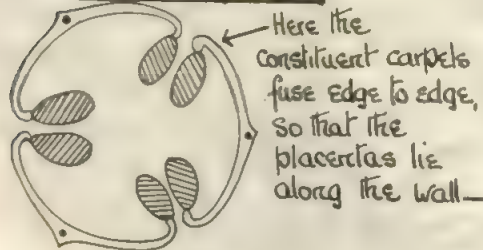 Here the
constituent carpels
fuse edge to edge,
so that the
placentas lie
along the wall